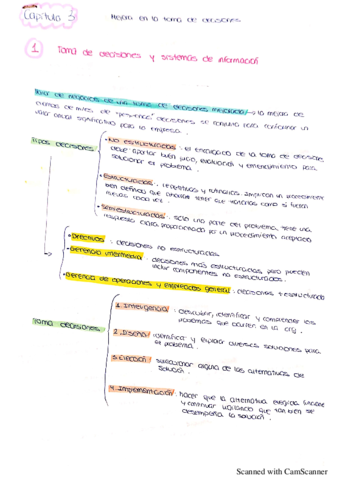 Capítulo 3: Mejora en la toma de decisiones
1 Toma de decisiones y sistemas de información
Valor de negocios de una toma de decisiones mejorada / la mejora de
cientos de miles de "pequeñas" decisiones se conjunta para conformar un
valor anual significativo para la empresa.
Tipos decisiones
• No estructuradas: el encargado de la toma de decisiones
debe aportar buen juicio, evaluación y entendimiento para
solucionar el problema.
• Estructuradas: repetitivas y rutinarias, implican un procedimiento
bien definido
• Semiestructuradas: sólo una parte del problema tiene una
respuesta clara proporcionada por un procedimiento aceptado
• Directivos: decisiones no estructuradas
• Gerencia intermedia: decisiones más estructuradas, pero pueden
incluir componentes no estructurados.
• Gerencia de operaciones y empleados general: decisiones + estructurada
Toma decisiones
1. Inteligencia: descubrir, identificar y comprender los
problemas que ocurren en la org.
2. Diseño / identificar y explorar diversas soluciones para
el problema.
3. Elección / seleccionar alguna de las alternativas de
solución.
4. Implementación: hacer que la alternativa elegida funcione
y continuar vigilando que tan bien se
desempeña la solución.
Scanned with CamScanner